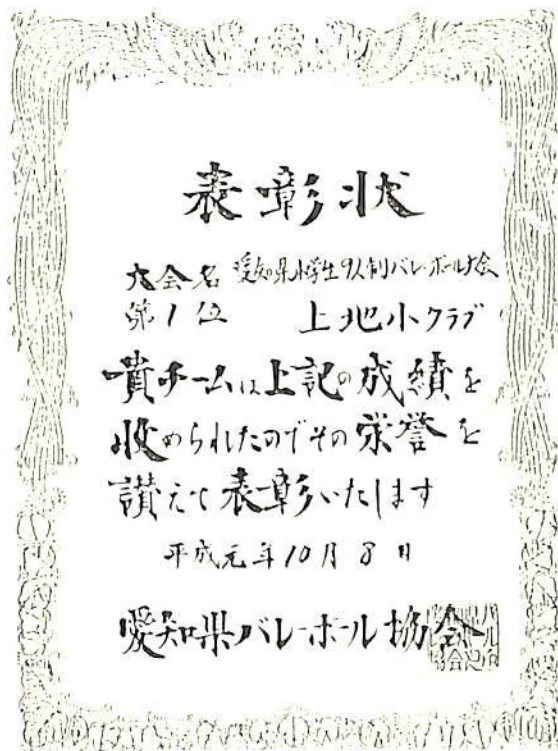 表彰状
大会名 愛知県小学生9人制バレーボール大会
第1位 上地小クラブ
貴チームは上記の成績を
収められたのでその栄誉を
讃えて表彰いたします
平成元年10月8日
愛知県バレーボール協会